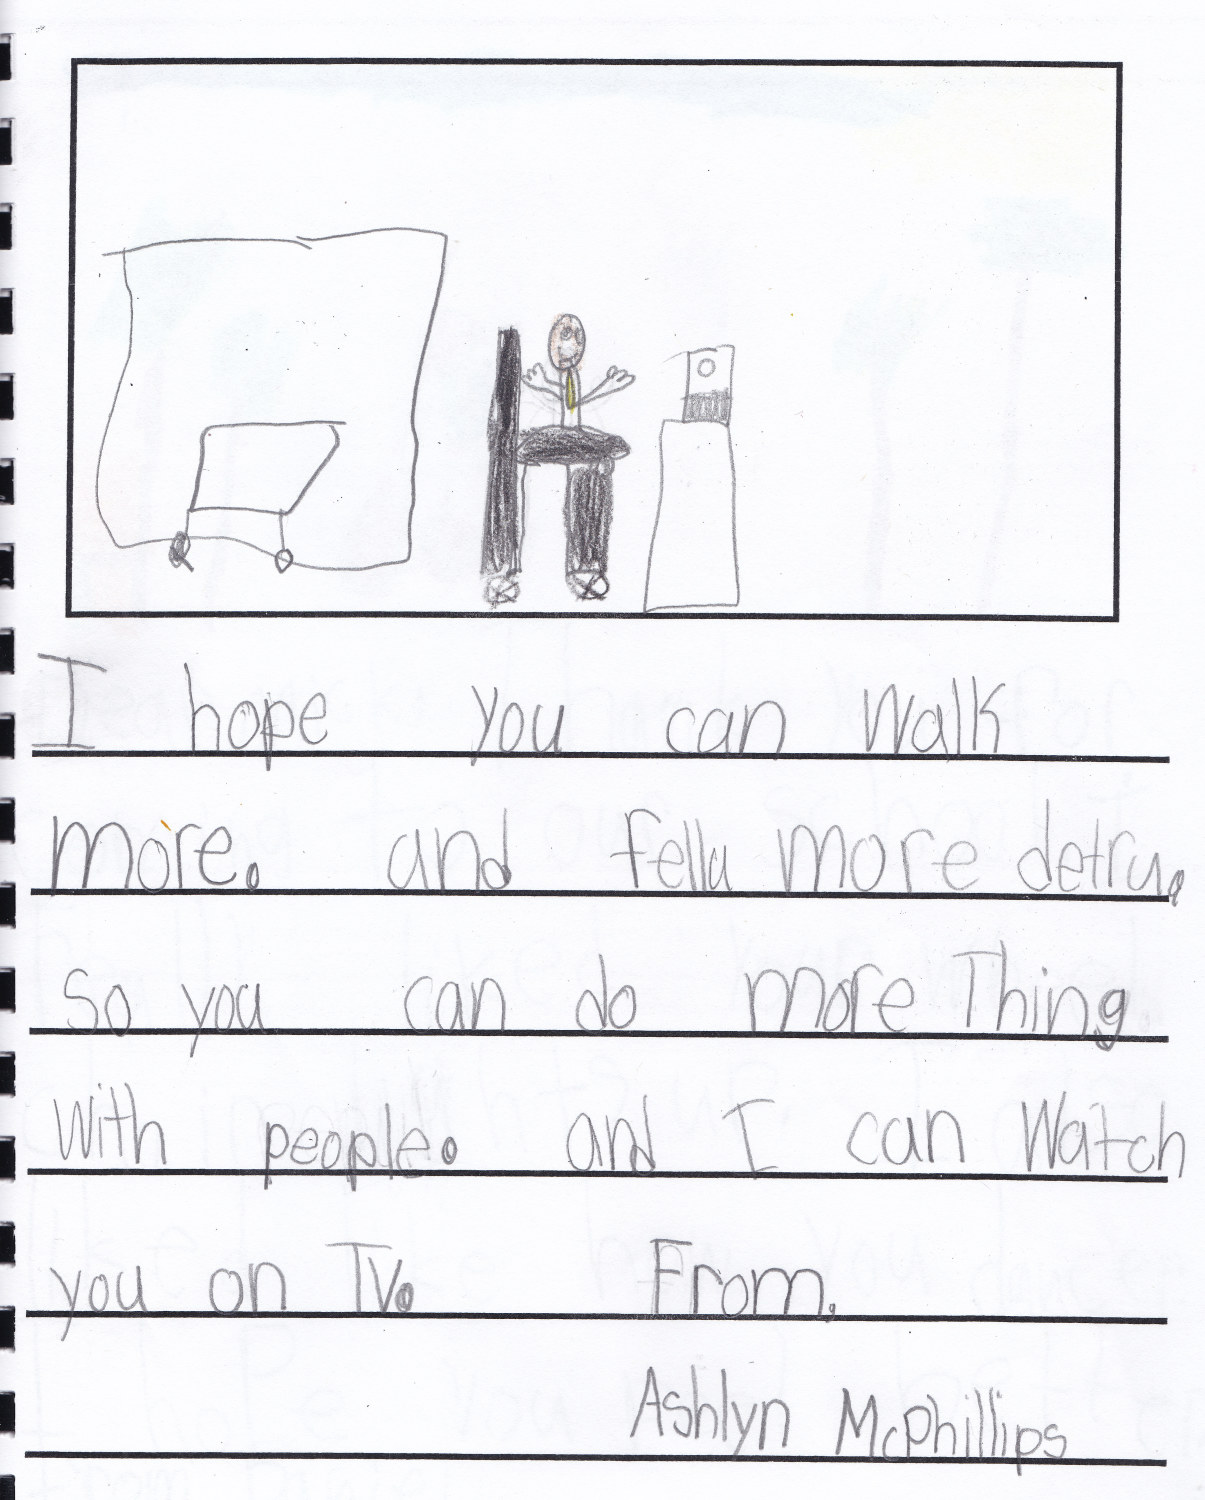 I hope you can walk
more. and fella more detru.
so you can do more Thing
with people. and I can Watch
you on TV. From.
Ashlyn McPhillips